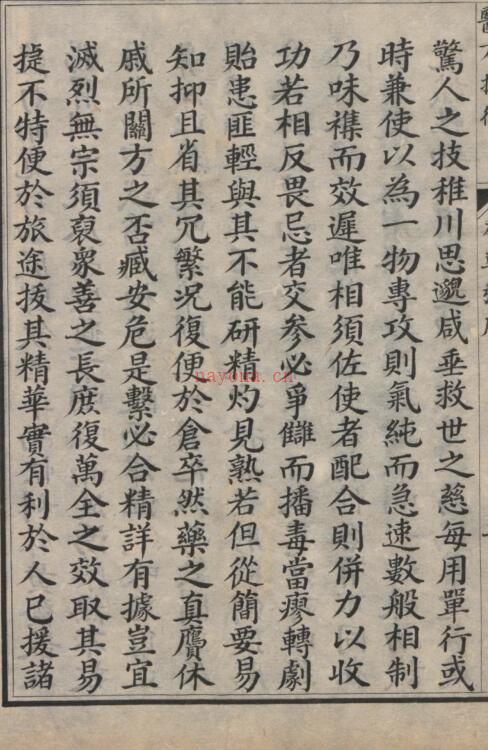 驚人之技稚川思邈咸垂救世之慈每用單行或
時兼使以為一物專攻則氣純而急速數般相制
乃味襍而效遲唯相須佐使者配合則併力以收
功若相反畏忌者交參必爭讎而播毒當瘳轉劇
貽患匪輕與其不能研精灼見熟若但從簡要易
知抑且省其冗繁况復便於倉卒然藥之真贗休
戚所關方之否臧安危是繫必合精詳有據豈宜
滅烈無宗須裒衆善之長庶復萬全之效取其易
捷不特便於旅途拔其精華實有利於人已援諸
nayona.cn